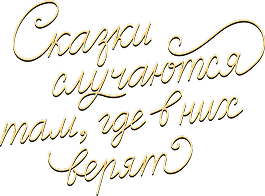 Сказки
случаются
там, где в них
верят